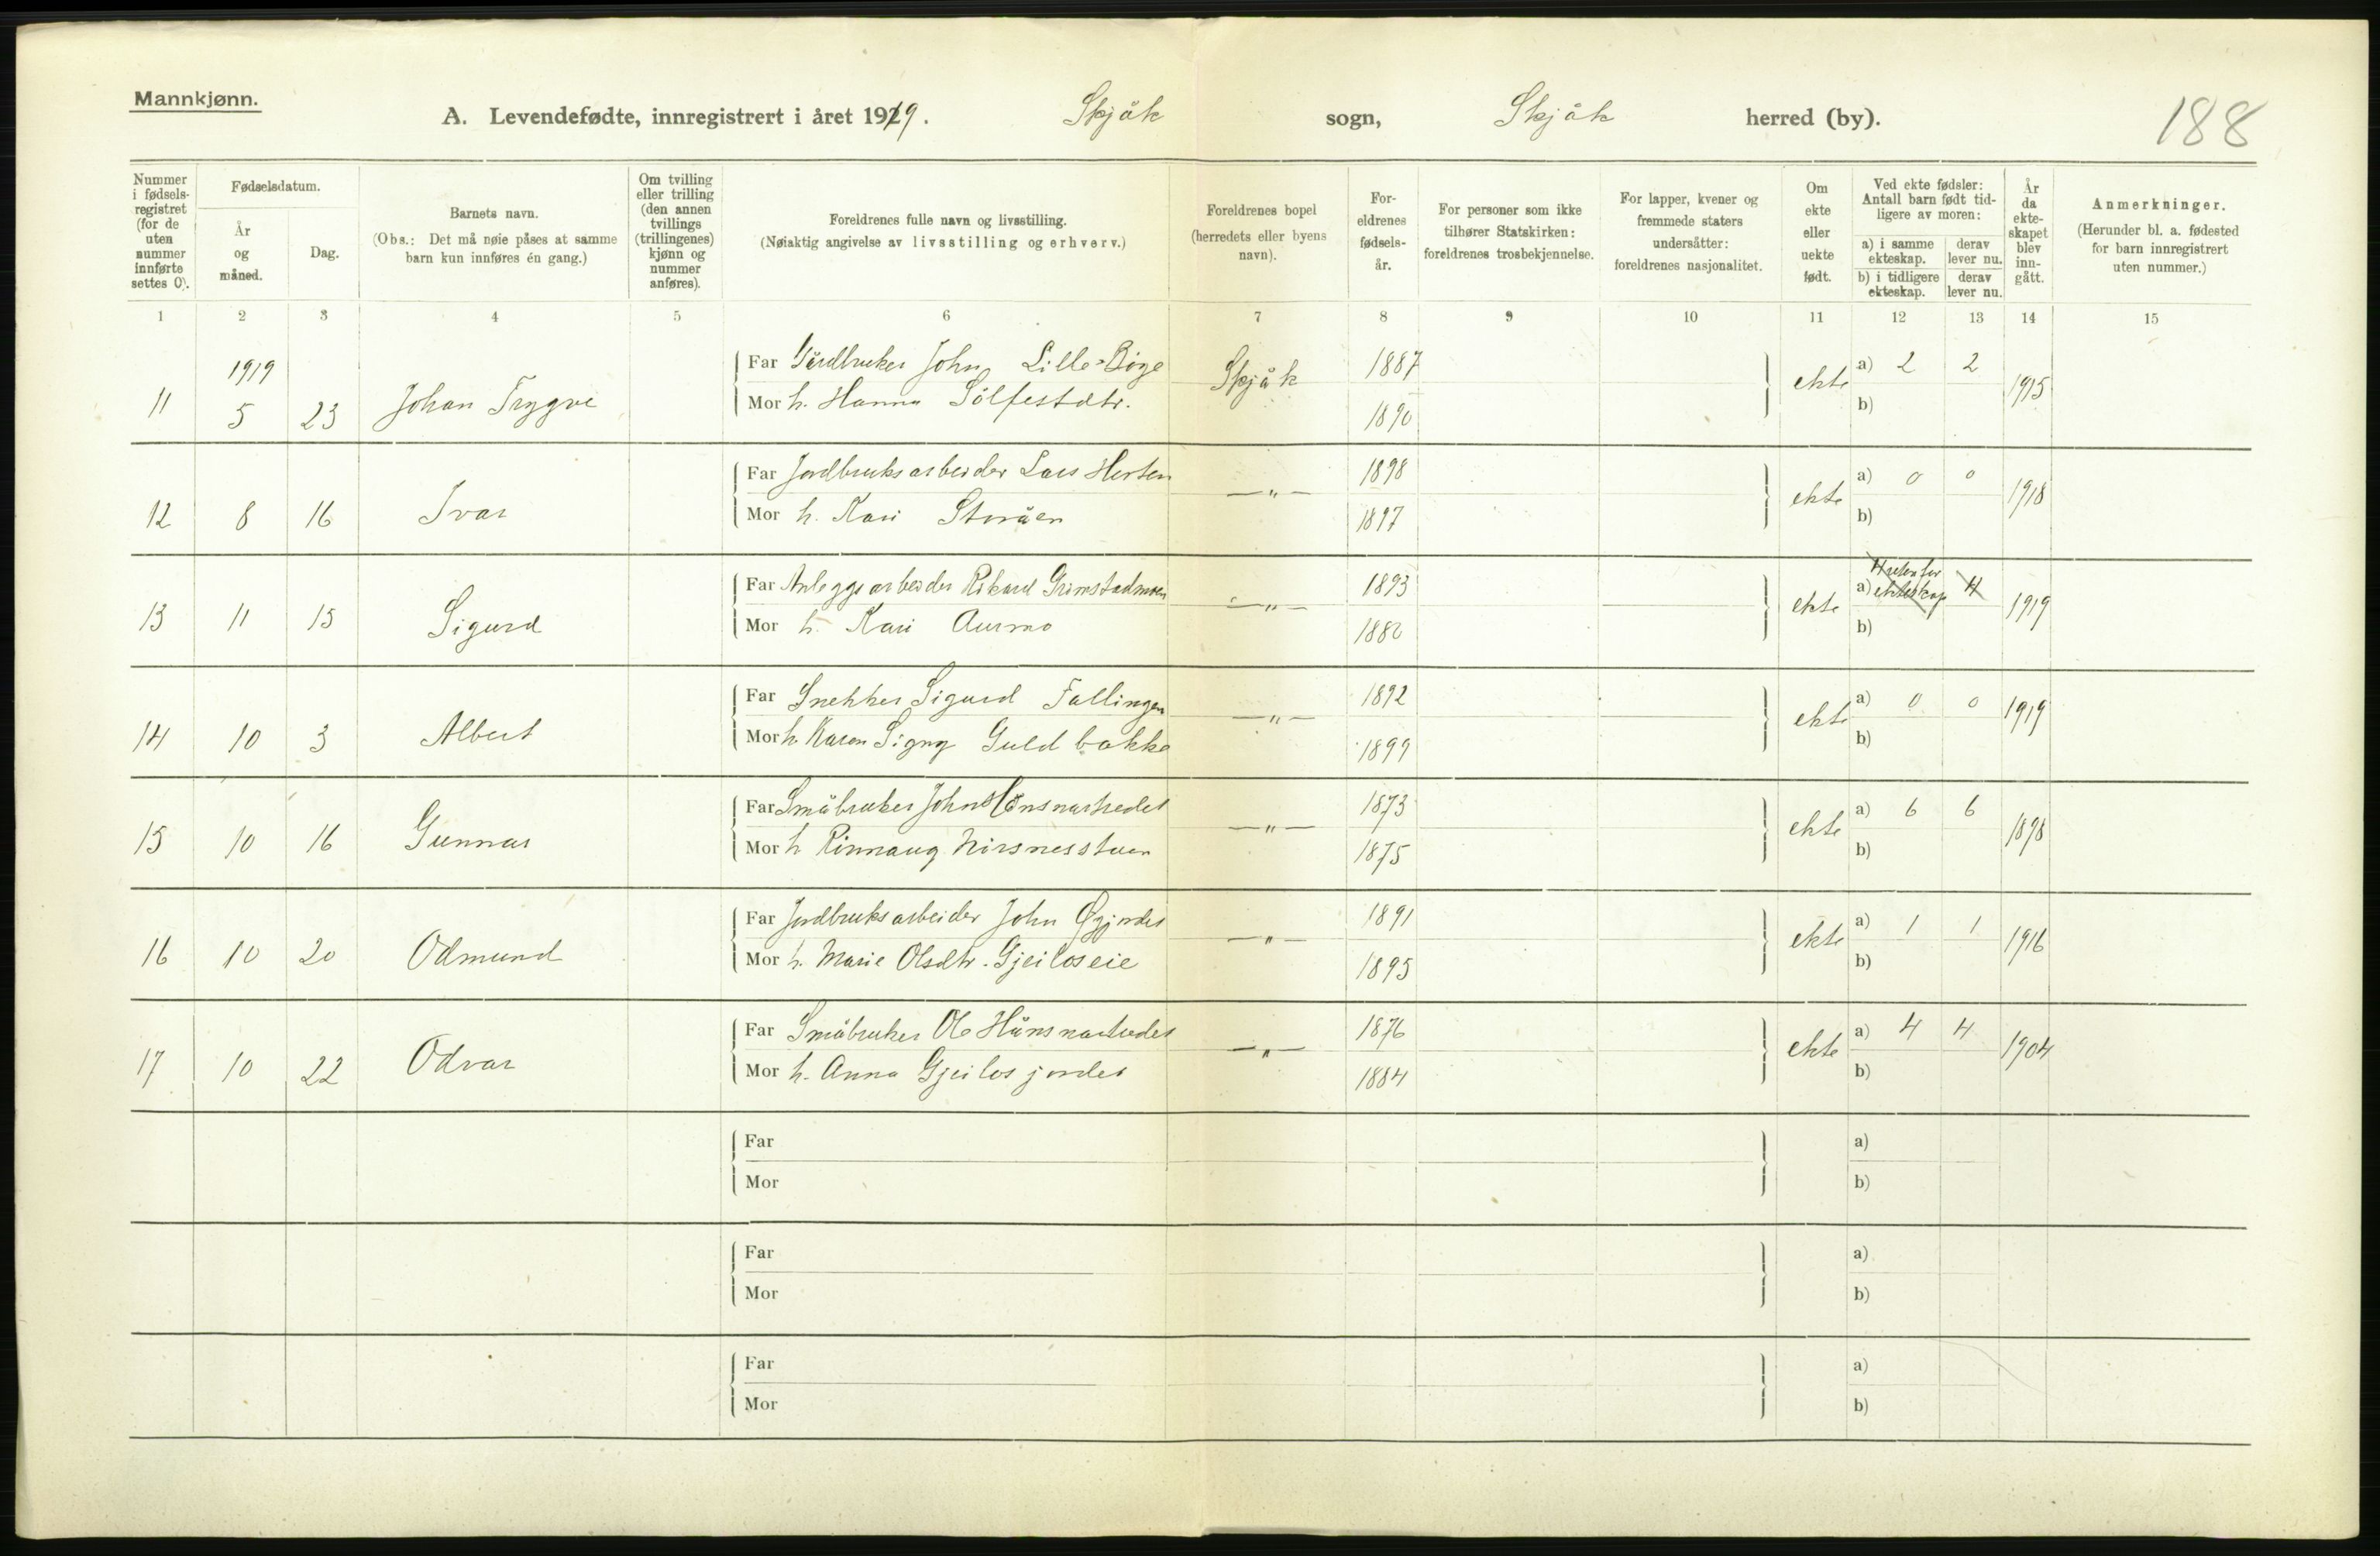 Mannkjønn.
A. Levendefødte, innregistrert i året 1919. Skjåk sogn, Skjåk herred (by). 188
Nummer i fødsels-registret (for de uten nummer innførte settes 0).
Fødselsdatum.
År og måned.
Dag.
Barnets navn.
(Obs.: Det må nøie påses at samme barn kun innføres én gang.)
Om tvilling eller trilling (den annen tvillings (trillingenes) kjønn og nummer anføres).
Foreldrenes fulle navn og livsstilling.
(Nøiaktig angivelse av livsstilling og erhverv.)
Foreldrenes bopel (herredets eller byens navn).
For-eldrenes fødsels-år.
For personer som ikke tilhører Statskirken: foreldrenes trosbekjennelse.
For lapper, kvener og fremmede staters undersåtter: foreldrenes nasjonalitet.
Om ekte eller uekte født.
Ved ekte fødsler: Antall barn født tid-ligere av moren:
a) i samme ekteskap. derav lever nu.
b) i tidligere ekteskap. derav lever nu.
År da ekte-skapet blev inn-gått.
Anmerkninger.
(Herunder bl. a. fødested for barn innregistrert uten nummer.)
1 2 3 4 5 6 7 8 9 10 11 12 13 14 15
1919
Far Gårdbruker John Lille-Bøye Skjåk 1887 a) 2 2
11 5 23 Johan Trygve Mor h. Hanna Sölfestdtr. 1890 ekte b) 1915
Far Jordbruksarbeider Lars Herten —"— 1898 a) 0 0
12 8 16 Ivar Mor h. Kari Storåen 1897 ekte b) 1918
Far Anleggsarbeider Rikard Grimstadmoen —"— 1893 a) 4 utenfor ekteskap 4
13 11 15 Sigurd Mor h. Kari Aurmo 1882 ekte b) 1919
Far Snekker Sigurd Fallingen —"— 1892 a) 0 0
14 10 3 Albert Mor h. Karen Signy Guldbakke 1899 ekte b) 1919
Far Småbruker John —"— 1873 a) 6 6
15 10 16 Gunnar Mor h. Rinnaug 1875 ekte b) 1898
Far Jordbruksarbeider John Øyjordet —"— 1891 a) 1 1
16 10 20 Odmund Mor h. Marie Olsdtr. Gjeiloseie 1895 ekte b) 1916
Far Småbruker Ole —"— 1876 a) 4 4
17 10 22 Odvar Mor h. Anna Gjeilosjordet 1884 ekte b) 1904
Far a)
Mor b)
Far a)
Mor b)
Far a)
Mor b)